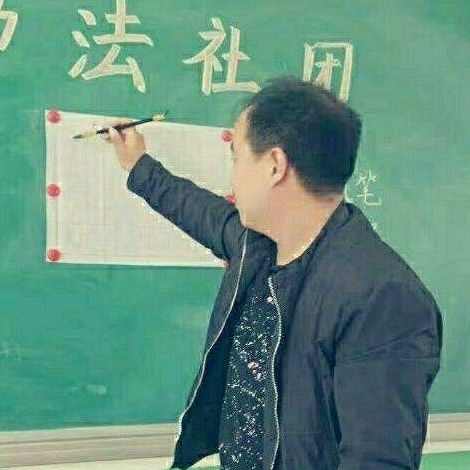 书法社团
笔